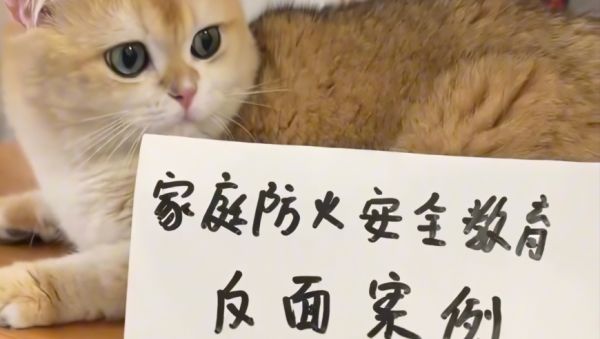 家庭防火安全教育
反面案例